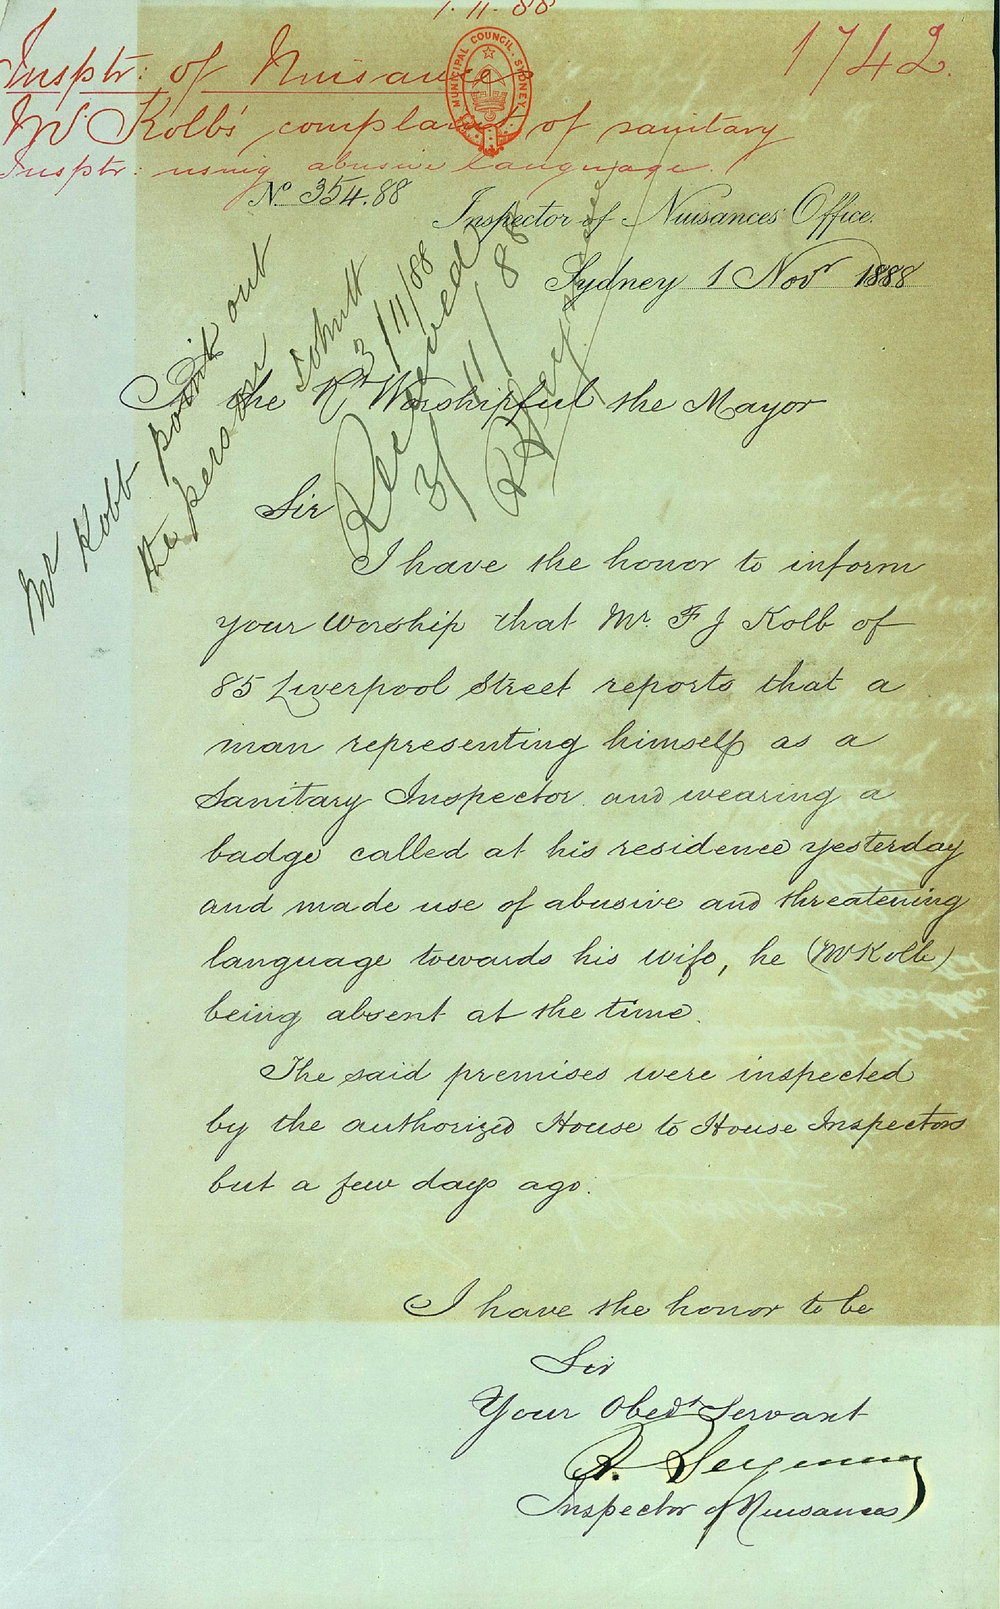 1.11.88
1742.
Insptr: of Nuisance
Mr Kolb's complaint of sanitary
Insptr: using abusive language.
MUNICIPAL COUNCIL. SYDNEY.
No. 354.88
Inspector of Nuisances Office.
Sydney 1 Novr 1888
Mr Kobb point out
the person
3/11/88
Received
3/11/88
To the Rt Worshipful the Mayor
Sir
I have the honor to inform
your Worship that Mr. F J Kolb of
85 Liverpool Street reports that a
man representing himself as a
Sanitary Inspector and wearing a
badge called at his residence yesterday
and made use of abusive and threatening
language towards his wife, he (Mr Kolb)
being absent at the time.
The said premises were inspected
by the authorized House to House Inspectors
but a few days ago.
I have the honor to be
Sir
Your Obedt Servant
R. Seymour
Inspector of Nuisances